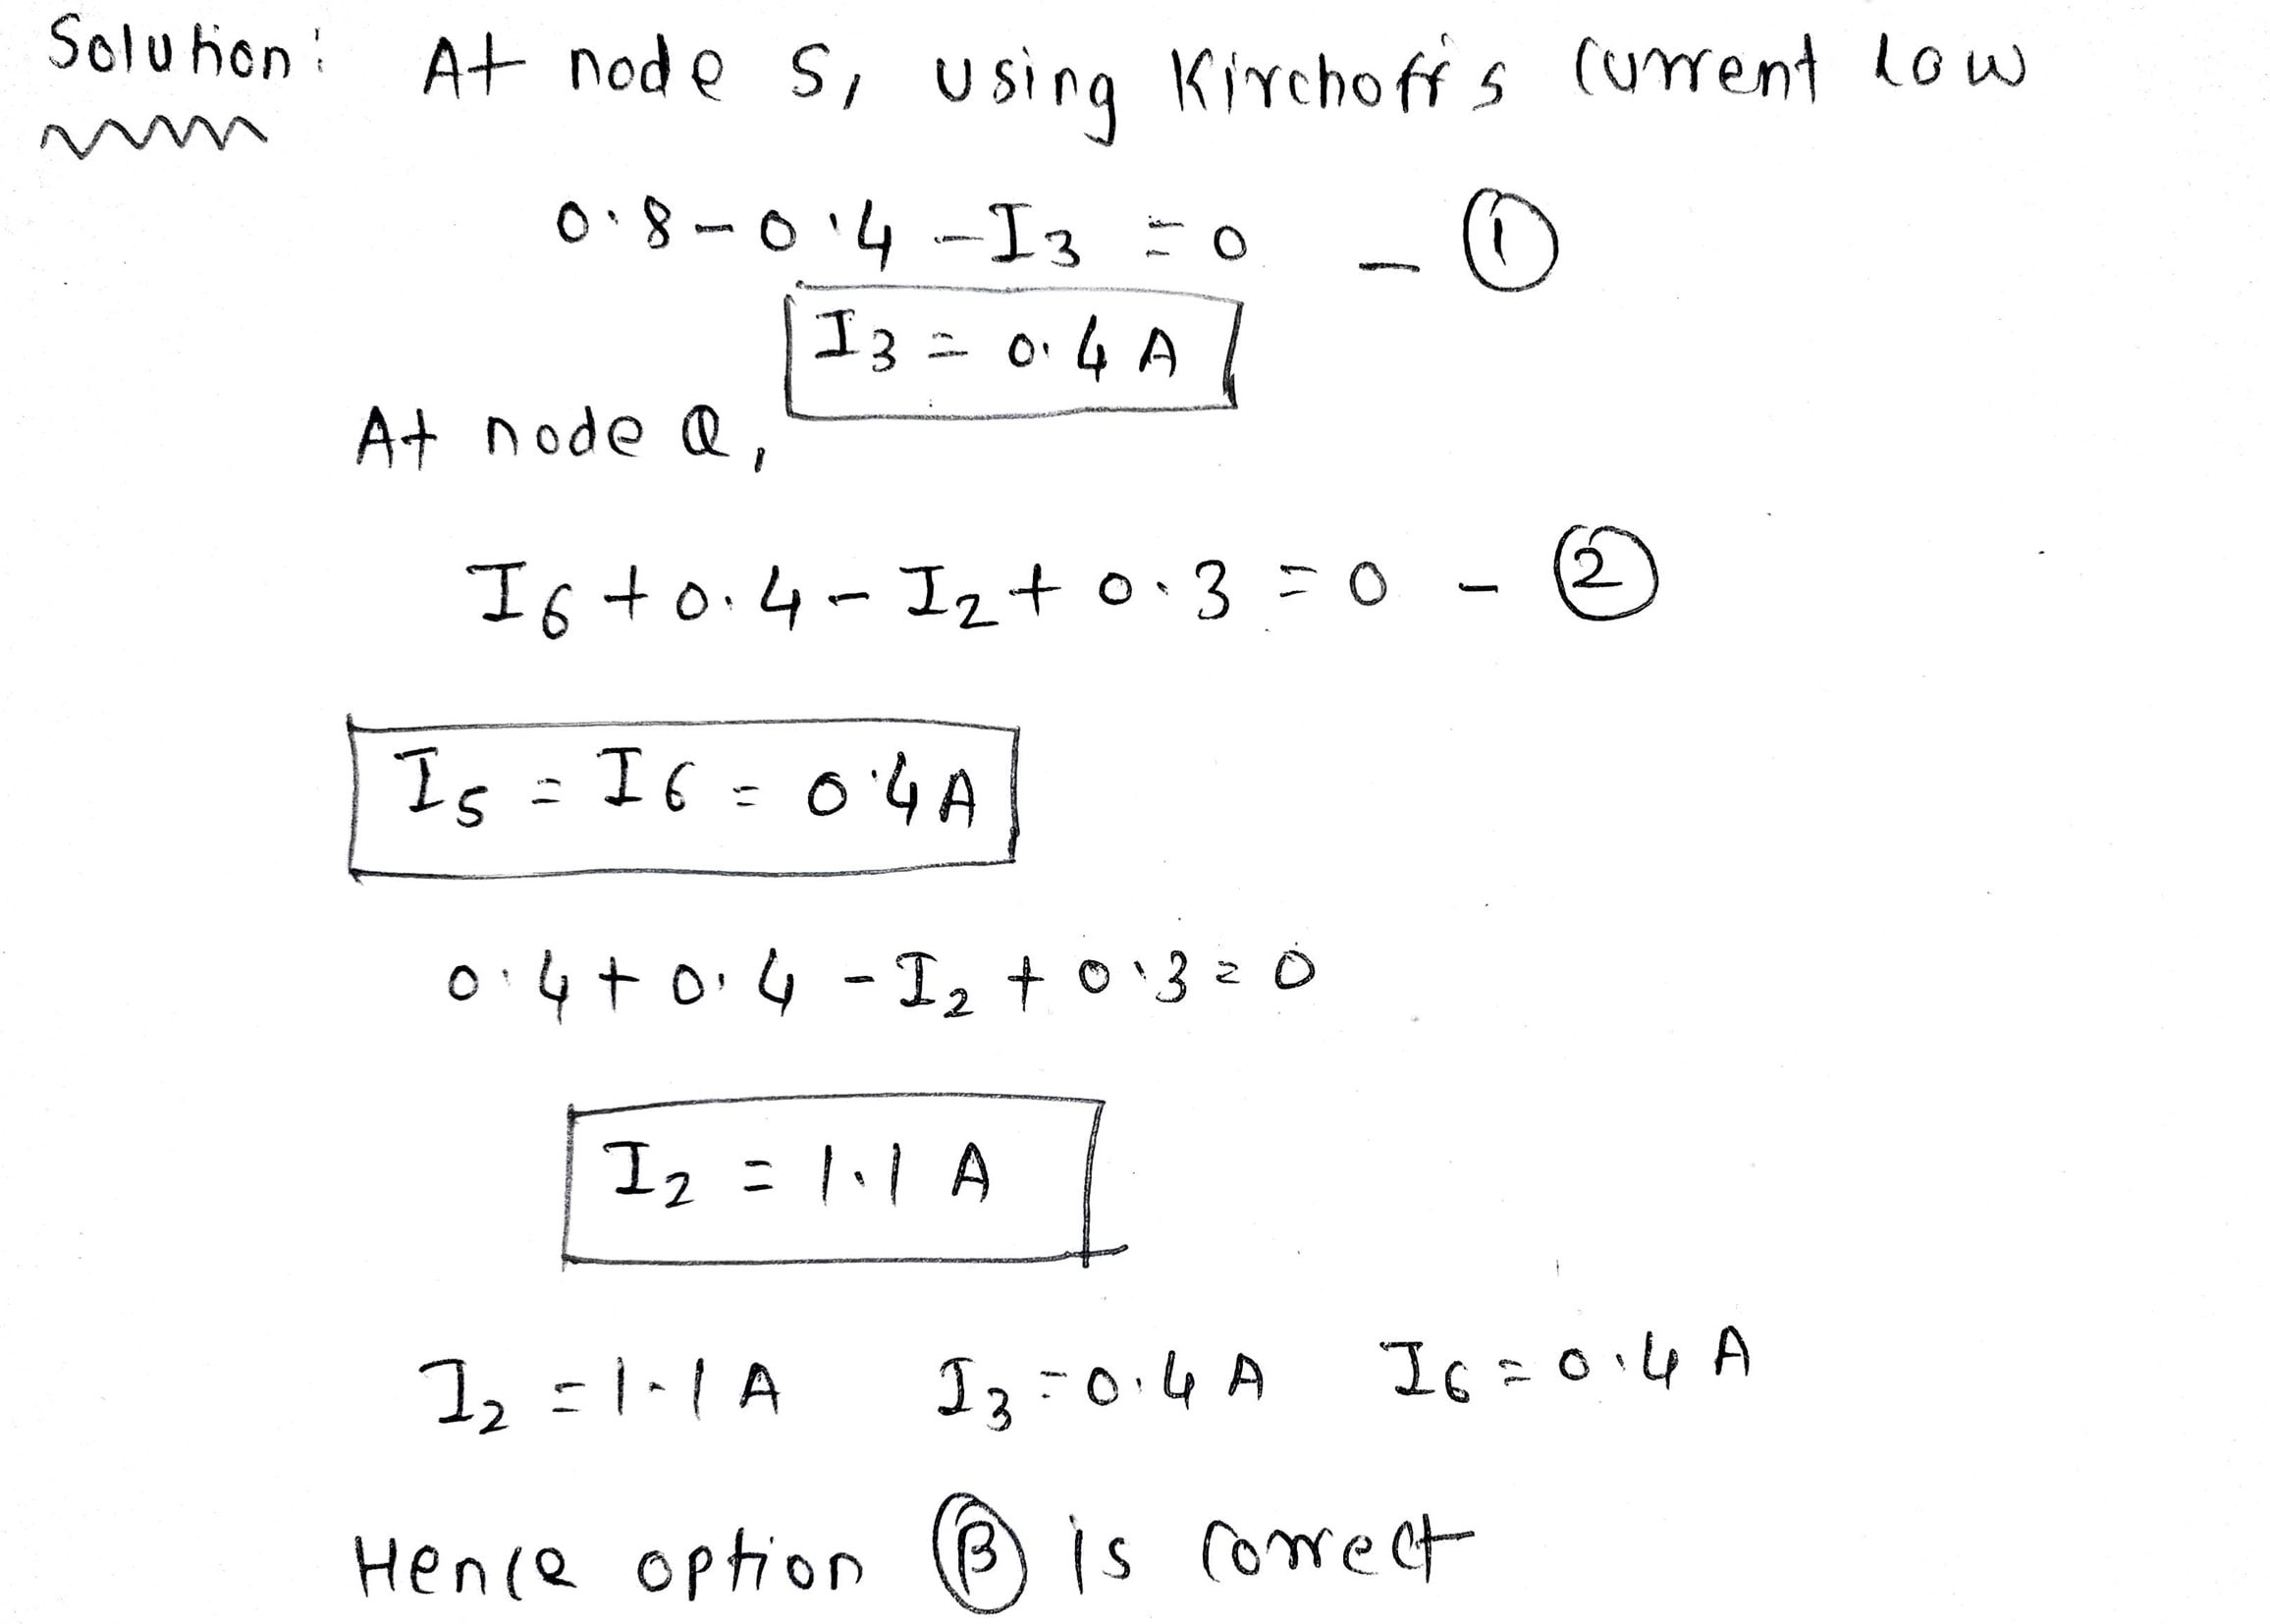 Solution: At node S, using Kirchoff's current low
0.8 - 0.4 - I3 = 0 - ①
I3 = 0.4 A
At node Q,
I6 + 0.4 - I2 + 0.3 = 0 - ②
I5 = I6 = 0.4 A
0.4 + 0.4 - I2 + 0.3 = 0
I2 = 1.1 A
I2 = 1.1 A I3 = 0.4 A I6 = 0.4 A
Hence option Ⓑ is correct